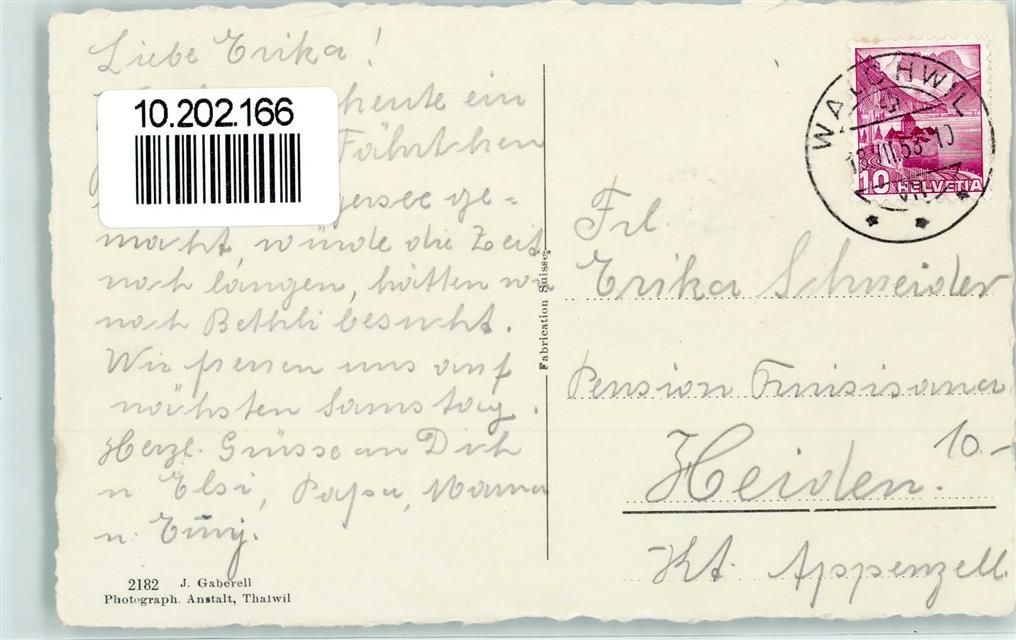 Liebe Erika!
heute ein
Fährtchen
gersee ge=
macht, würde die Zeit
noch langen, hätten wir
noch Bethli besucht.
Wir freuen uns auf
nächsten Samstag.
Herzl. Grüsse an Dich
u Elsi, Papa, Mama
u.
10.202.166
2182 J. Gaberell
Photograph. Anstalt, Thalwil
Fabrication Suisse.
WALCHWIL
10 HELVETIA
Frl.
Erika Schneider
Pension
Heiden.
10.-
Kt. Appenzell.